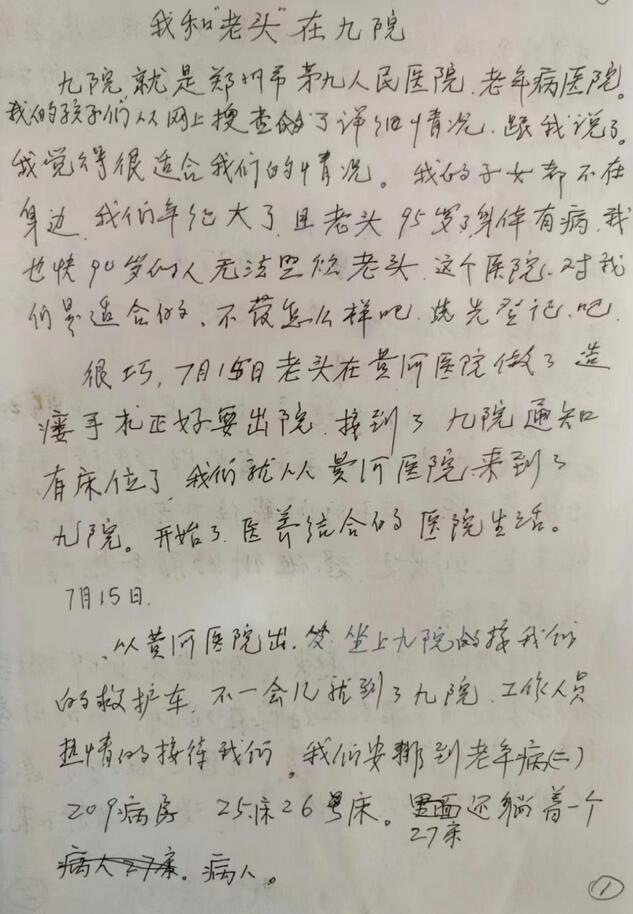 我和“老头”在九院
九院就是郑州市第九人民医院、老年病医院。
我的孩子们从网上搜查的了详细情况、跟我说了。
我觉得很适合我们的情况。我的子女都不在
身边、我们年纪大了、且老头95岁了身体有病、我
也快90岁的人无法照顾老头、这个医院、对我
们是适合的、不管怎么样吧、先登记、吧、
很巧，7月15日老头在黄河医院做了造
瘘手术正好要出院、接到了九院通知
有床位了、我们就从黄河医院来到了
九院。开始了医养结合的医院生活。
7月15日、
从黄河医院出、坐上九院的接我们
的救护车、不一会儿就到了九院、工作人员
热情的接待我们。我们安排到老年病(二)
209病房 25床26号床。里面还躺着一个
27床
病人27床。病人。
1